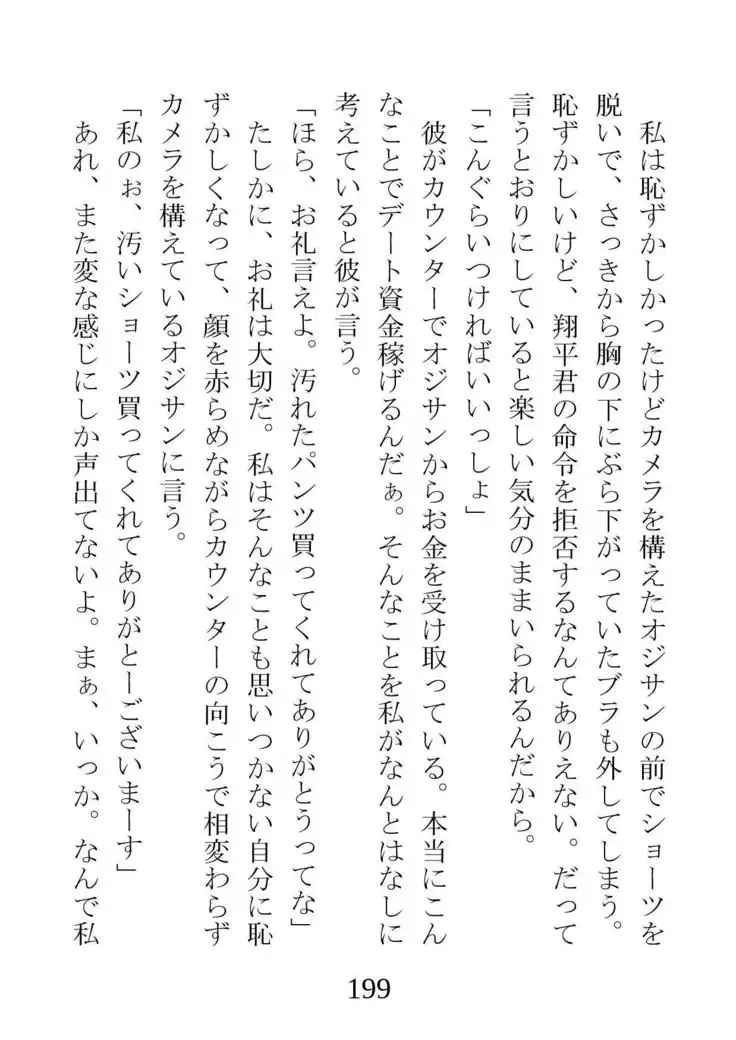 私は恥ずかしかったけどカメラを構えたオジサンの前でショーツを
脱いで、さっきから胸の下にぶら下がっていたブラも外してしまう。
恥ずかしいけど、翔平君の命令を拒否するなんてありえない。だって
言うとおりにしていると楽しい気分のままいられるんだから。
「こんぐらいつければいいっしょ」
彼がカウンターでオジサンからお金を受け取っている。本当にこん
なことでデート資金稼げるんだぁ。そんなことを私がなんとはなしに
考えていると彼が言う。
「ほら、お礼言えよ。汚れたパンツ買ってくれてありがとうってな」
たしかに、お礼は大切だ。私はそんなことも思いつかない自分に恥
ずかしくなって、顔を赤らめながらカウンターの向こうで相変わらず
カメラを構えているオジサンに言う。
「私のぉ、汚いショーツ買ってくれてありがとーございまーす」
あれ、また変な感じにしか声出てないよ。まぁ、いっか。なんで私
199